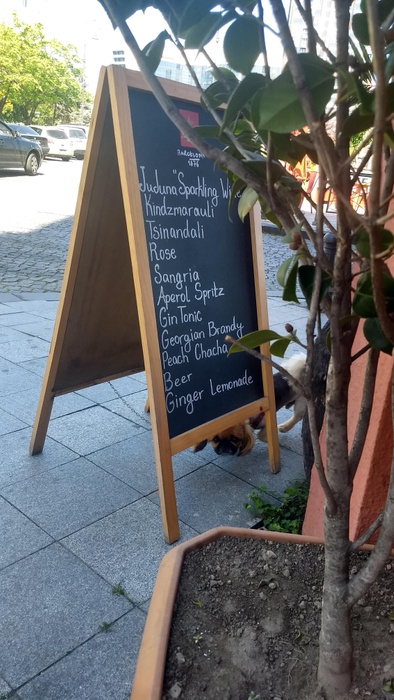 BARCELONA
1876
Juduna "Sparkling Wi
Kindzmarauli
Tsinandali
Rose
Sangria
Aperol Spritz
Gin Tonic
Georgian Brandy
Peach Chacha
Beer
Ginger Lemonade